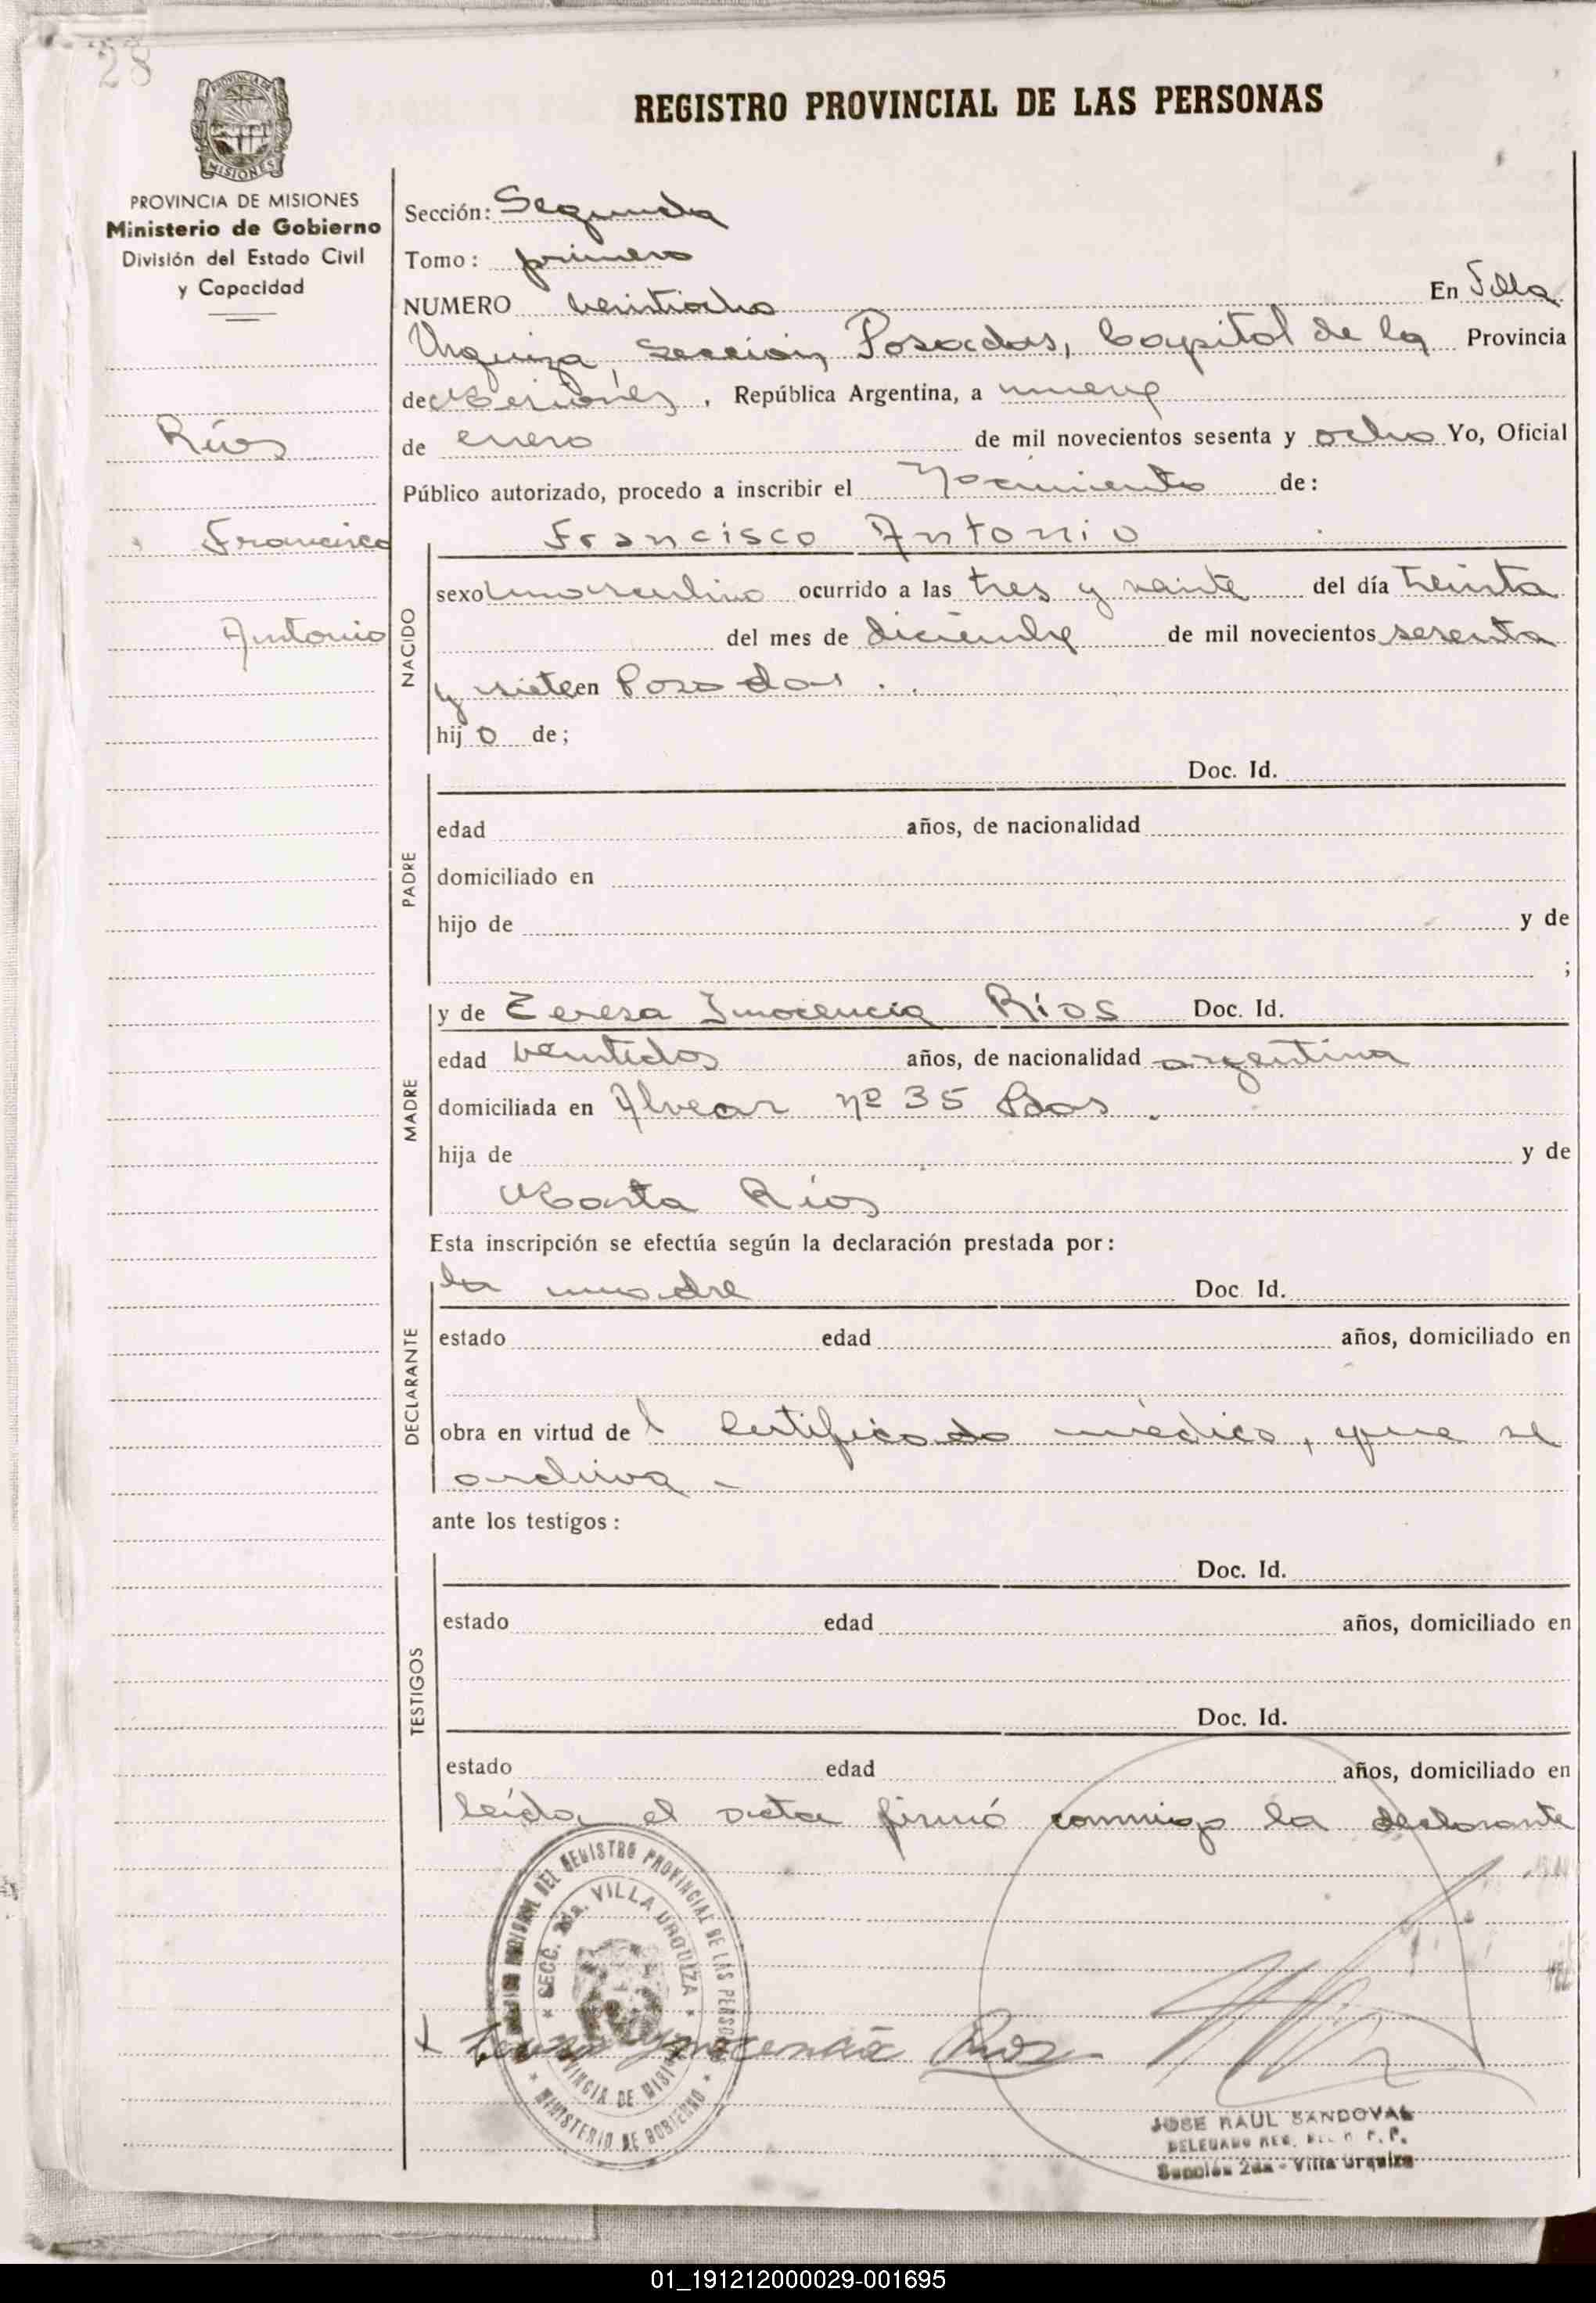 28
PROVINCIA DE
MISIONES
REGISTRO PROVINCIAL DE LAS PERSONAS
PROVINCIA DE MISIONES
Ministerio de Gobierno
División del Estado Civil
y Capacidad
Ríos
Francisco
Antonio
Sección: Segunda
Tomo: primero
NUMERO veintiocho En Villa
Urquiza, Sección, Posadas, Capital de la Provincia
de Misiones, República Argentina, a nueve
de enero de mil novecientos sesenta y ocho Yo, Oficial
Público autorizado, procedo a inscribir el Nacimiento de:
Francisco Antonio
NACIDO
sexo masculino ocurrido a las tres y veinte del día treinta
del mes de diciembre de mil novecientos sesenta
y siete en Posadas.
hijo de;
Doc. Id.
PADRE
edad años, de nacionalidad
domiciliado en
hijo de y de
;
MADRE
y de Teresa Inocencia Ríos Doc. Id.
edad veintidos años, de nacionalidad argentina
domiciliada en Alvear nº 35 Pdas.
hija de y de
Marta Ríos
Esta inscripción se efectúa según la declaración prestada por:
DECLARANTE
la madre Doc Id.
estado edad años, domiciliado en
obra en virtud del certificado médico, que se
archiva -
ante los testigos:
TESTIGOS
Doc. Id.
estado edad años, domiciliado en
Doc. Id.
estado edad años, domiciliado en
leída el acta firmó conmigo la declarante
DEL REGISTRO PROVINCIAL DE LAS PERSONAS
SECC. 2da. VILLA URQUIZA
PROVINCIA DE MISIONES
MINISTERIO DE GOBIERNO
Teresa Ynocencia Rios
JOSE RAUL SANDOVAL
DELEGADO REG. DEL R. P. P.
Sección 2da - Villa Urquiza
01_191212000029-001695